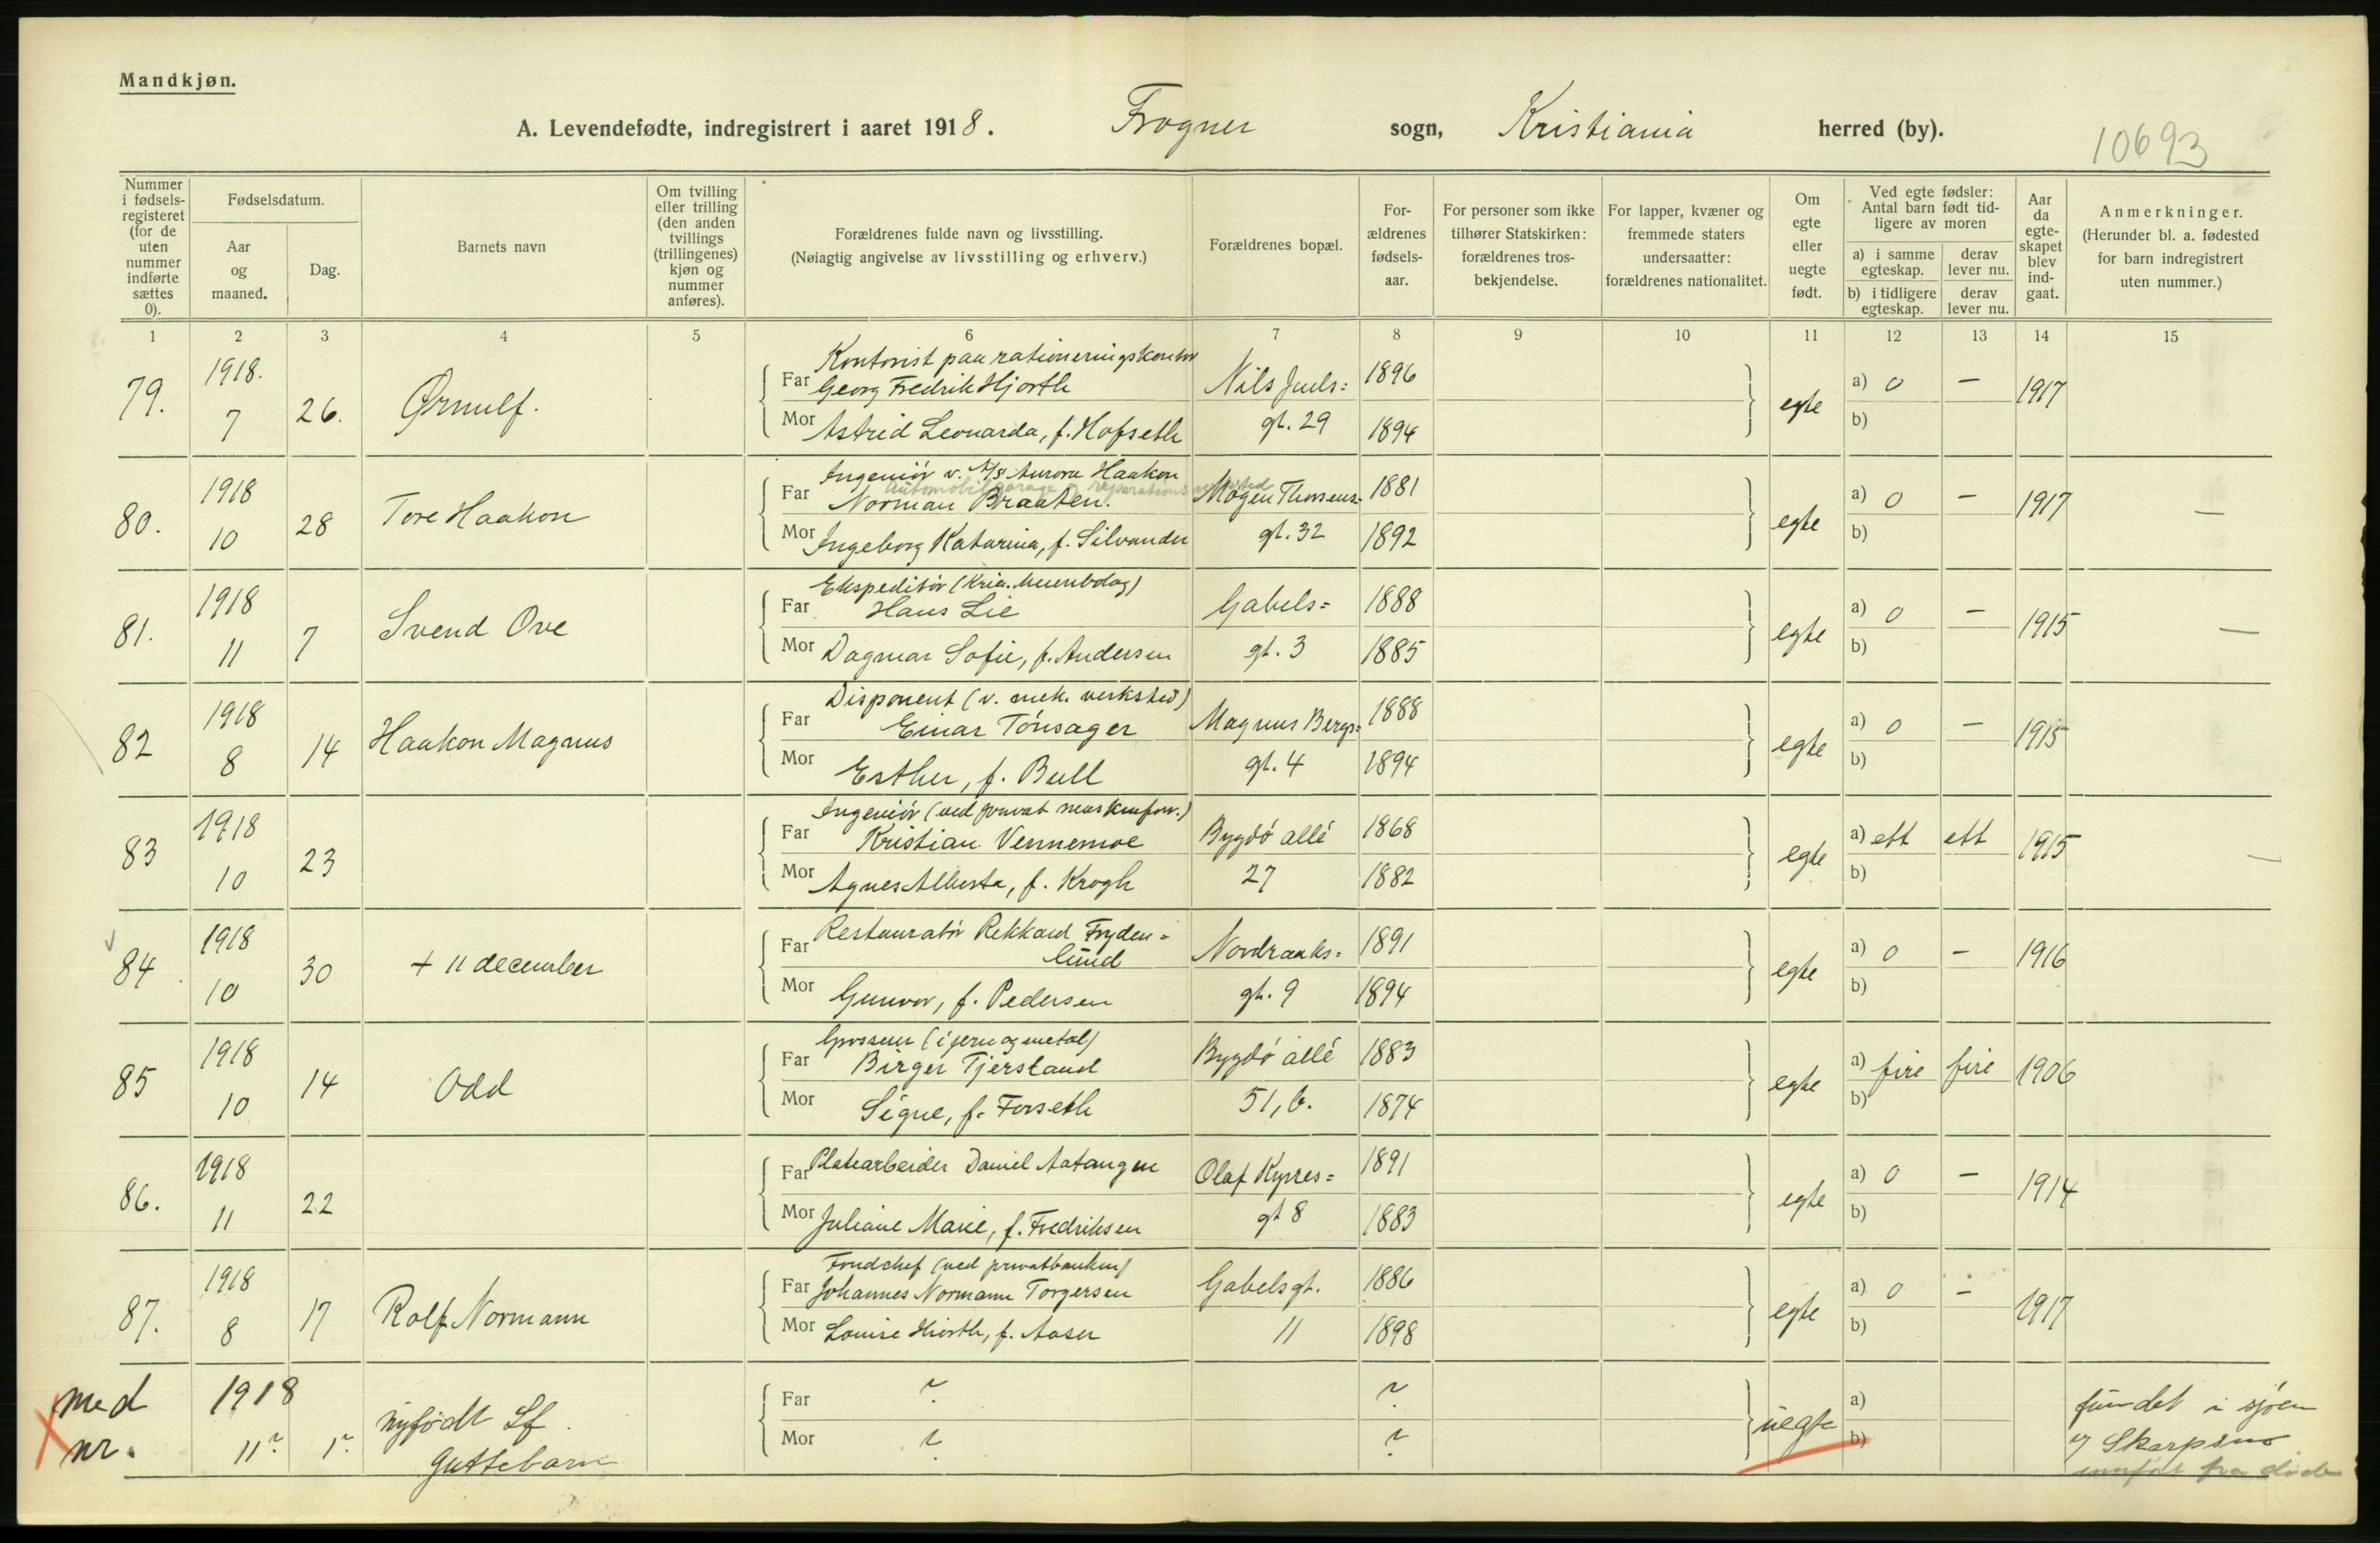 Mandkjøn.
A. Levendefødte, indregistrert i aaret 1918. Frogner sogn, Kristiania herred (by).
10693
Nummer i fødsels-registeret (for de uten nummer indførte sættes 0).
Fødselsdatum.
Aar og maaned.
Dag.
Barnets navn
Om tvilling eller trilling (den anden tvillings (trillingenes) kjøn og nummer anføres).
Forældrenes fulde navn og livsstilling.
(Nøiagtig angivelse av livsstilling og erhverv.)
Forældrenes bopæl.
For-ældrenes fødsels-aar.
For personer som ikke tilhører Statskirken: forældrenes tros-bekjendelse.
For lapper, kvæner og fremmede staters undersaatter: forældrenes nationalitet.
Om egte eller uegte født.
Ved egte fødsler: Antal barn født tid-ligere av moren
a) i samme egteskap.
derav lever nu.
b) i tidligere egteskap.
derav lever nu.
Aar da egte-skapet blev ind-gaat.
Anmerkninger.
(Herunder bl. a. fødested for barn indregistrert uten nummer.)
1 2 3 4 5 6 7 8 9 10 11 12 13 14 15
Kontorist paa rationeringskontor
79. 1918. 7 26. Ørnulf. Far Georg Fredrik Hjorth Nils Juels= 1896 egte a) 0 — 1917
Mor Astrid Leonarda, f. Hofseth gt. 29 1894 b)
Ingeniör v. A/S Aurora Haakon
Automobilgarage og reparationsverksted
80. 1918 10 28 Tore Haakon Far Norman Braaten. Mogen Thorsens= 1881 egte a) 0 — 1917 —
Mor Ingeborg Katarina, f. Silvander gt. 32 1892 b)
Ekspeditör (Kria.
81. 1918 11 7 Svend Ove Far Hans Lie Gabels= 1888 egte a) 0 — 1915 —
Mor Dagmar Sofie, f. Andersen gt. 3 1885 b)
Disponent (v. mek. verksted)
82 1918 8 14 Haakon Magnus Far Einar Tönsager Magnus Bergs= 1888 egte a) 0 — 1915
Mor Esther, f. Bull gt. 4 1894 b)
Ingeniör (ved privat
83 1918 10 23 Far Kristian Vennemoe Bygdö allé 1868 egte a) ett ett 1915 —
Mor Agnes Alberta, f. Krogh 27 1882 b)
84 1918 10 30 + 11 december Far Restauratör Rekkard Fryden=
lund Nordraaks= 1891 egte a) 0 — 1916
Mor Gunvor, f. Pedersen gt. 9 1894 b)
Grosserer (i jern og metal)
85 1918 10 14 Odd Far Birger Tjersland Bygdö allé 1883 egte a) fire fire 1906
Mor Signe, f. Forseth 51, b. 1874 b)
86. 1918 11 22 Far Platearbeider Daniel Aatangen Olaf Kyrres= 1891 egte a) 0 — 1914
Mor Juliane Marie, f. Fredriksen gt 8 1883 b)
Fondchef (ved privatbanken)
87. 1918 8 17 Rolf Normann Far Johannes Normann Torgersen Gabelsgt. 1886 egte a) 0 — 1917
Mor Louise Hiorth, f. Aaser 11 1898 b)
med 1918 nyfödt Lf. Far ? ? uegte a) fundet i sjöen
nr. 11? 1? Guttebarn Mor ? ? b) v/ Skarpsno
innført fra döde